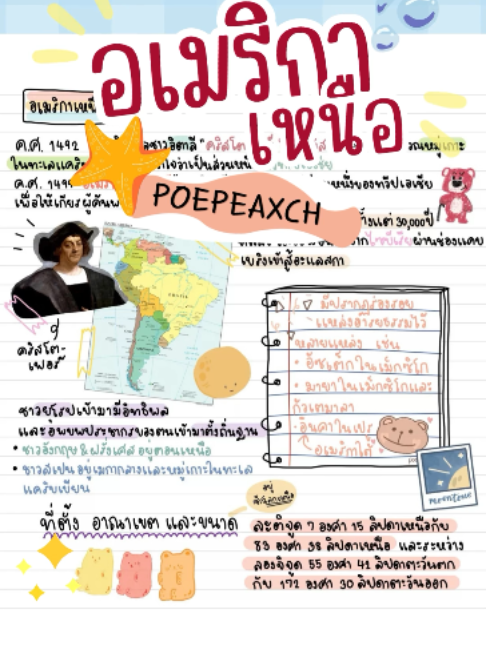 อเมริกา
เหนือ
อเมริกาเหนื
ค.ศ. 1492 ลชาวอิตาลี "คริสโต วณหมู่เกาะ
ในทะเลแคริ
เพื่อให้เกียร
POEPEAXCH
หนึ่งของทวีปเอเชีย
ั้งแต่ 30,000ปี
ผ่านช่องแคบ
เบริงเข้าสู่อะแลสกา
คริสโต-
เฟอร์
BRAZIL
มีปรากฏร่องรอย
แหล่งอารยธรรมไว้
หลายแหล่ง เช่น
• อัซเต็กในเม็กซิโก
• มายาในเม็กซิโกและ
กัวเตมาลา
• อินคาในเปรู
อเมริกาใต้
ชาวยุโรปเข้ามามีอิทธิพล
และอพยพประชากรของตนเข้ามาตั้งถิ่นฐาน
• ชาวอังกฤษ & ฝรั่งเศส อยู่ตอนเหนือ
• ชาวสเปน อยู่เมกากลางและหมู่เกาะในทะเล
แคริบเบียน
อยู่
ซีกโลกเหนือ
ที่ตั้ง อาณาเขต และขนาด
ละติจูด 7 องศา 15 ลิปดาเหนือกับ
83 องศา 38 ลิปดาเหนือ และระหว่าง
ลองจิจูด 55 องศา 42 ลิปดาตะวันตก
กับ 172 องศา 30 ลิปดาตะวันออก